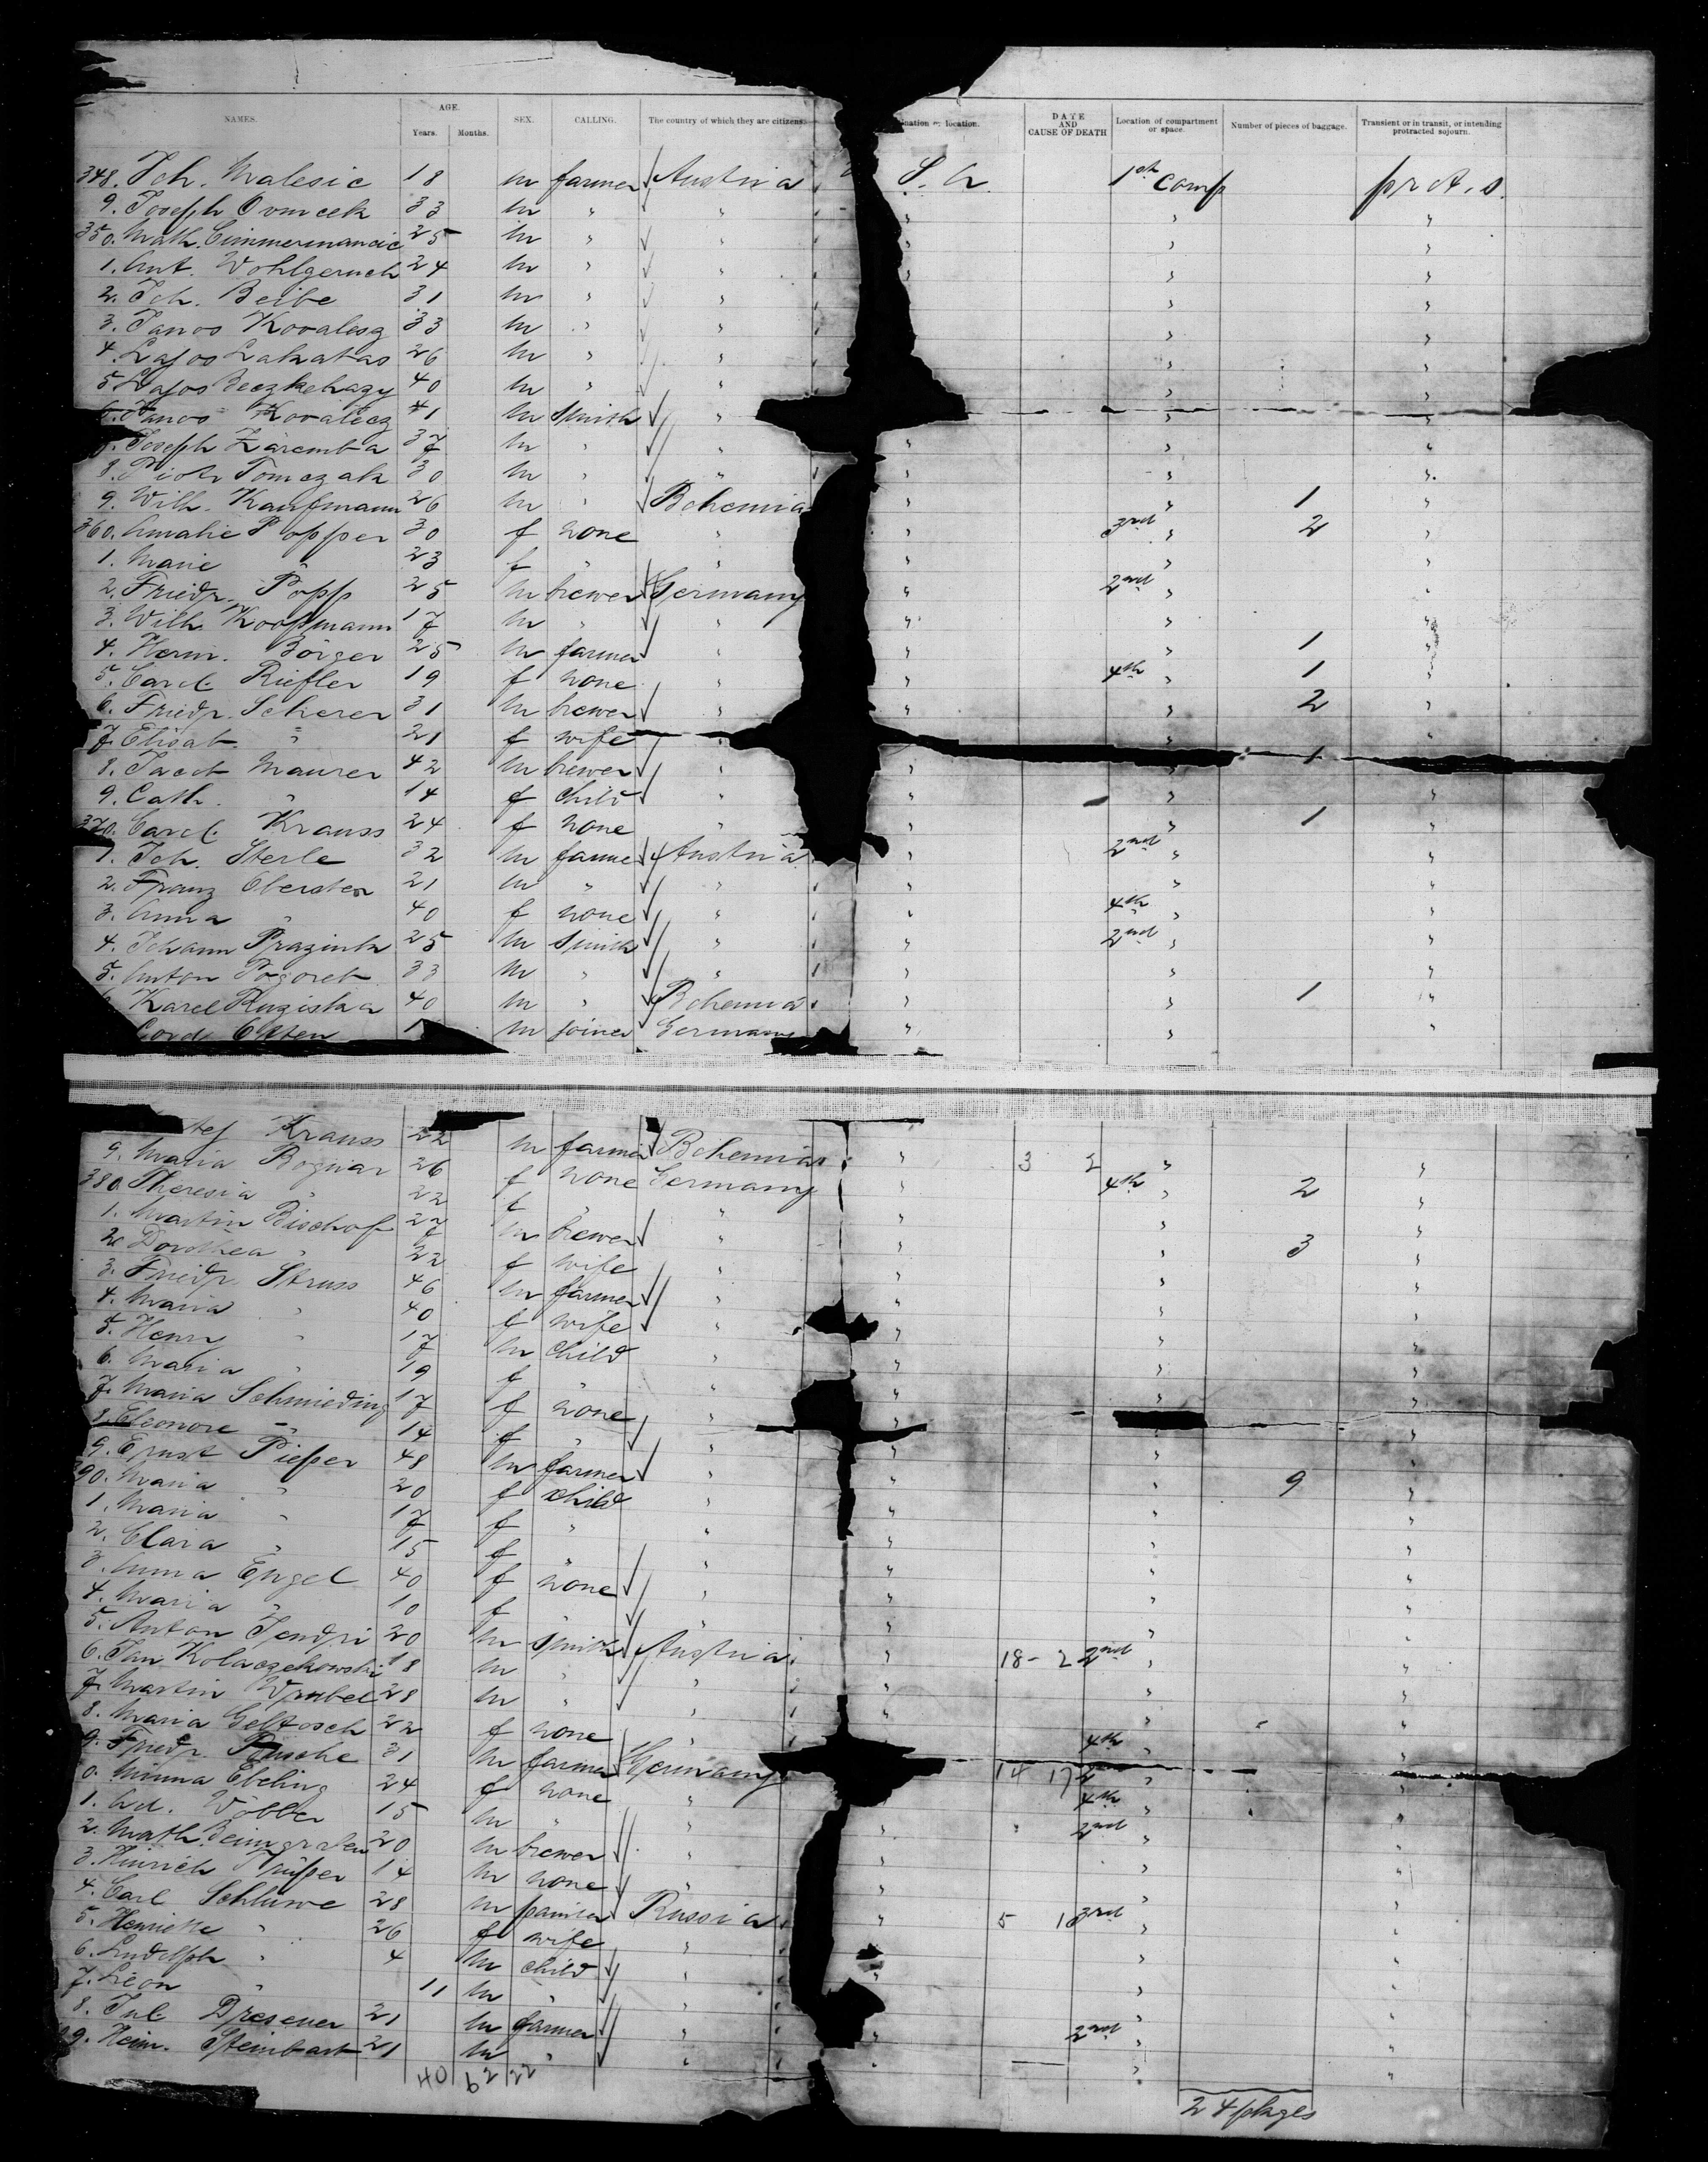 NAMES. AGE. Years. Months. SEX. CALLING. The country of which they are citizens. nation or location. DATE AND CAUSE OF DEATH Location of compartment or space. Number of pieces of baggage. Transient or in transit, or intending protracted sojourn.
348. Joh. Malesic 18 m farmer Austria 1st comp prot. s.
9. Joseph Ovnicek 33 m " "
350. Math. Cimmermancic 25 m " "
1. Ant. Wohlgemuth 24 m " "
2. Joh. Beibe 31 m " "
3. Janos Kovalesz 33 m " "
4. Lajos Lakatos 26 m " "
5. Lajos 40 m " "
6. Janos Kovalecz 41 m smith "
7. Joseph Zaremba 37 m " "
8. Piotr Tomczak 30 m " "
9. Wilh. Kaufmann 26 m " Bohemia " 1 "
360. Amalie Popper 30 f none " 3rd " 2 "
1. Marie " 23 f " " "
2. Friedr. Popp 25 m brewer Germany 2nd "
3. Wilh. Koopmann 17 m " " "
4. Herm. Börger 25 m farmer " " 1 "
5. Carol. Riefler 19 f none " 4th " 1 "
6. Friedr. Scherer 31 m brewer " " 2 "
7. Elisab. " 21 f wife " "
8. Jacob Maurer 42 m brewer " 1
9. Cath. " 14 f child " " "
370. Carol. Krauss 24 f none " " 1 "
1. Joh. Sterle 32 m farmer Austria 2nd " "
2. Franz Oberster 21 m " " " "
3. Anna " 40 f none " 4th " "
4. Johann Prazink 25 m smith " 2nd " "
5. Anton Pogoret 33 m " " " "
Karel Ruziska 40 m " Bohemia " 1 "
Cord Otten m joiner Germany " "
Krauss 22 m farmer Bohemia " 3 2 " "
9. Maria Bognar 26 f none Germany " 4th " 2 "
380. Theresia " 22 f " " " "
1. Martin Bischof 27 m brewer " " 3 "
2. Dorothea " 22 f wife " " "
3. Friedr. Struss 46 m farmer " " "
4. Maria " 40 f wife " " "
5. Henry " 17 m child " " "
6. Maria " 19 f " " " "
7. Maria Schmieding 17 f none " " "
8. Eleonore " 14 f " " "
9. Ernst Pieper 48 m farmer " " 9 "
390. Maria " 20 f child " " "
1. Maria " 17 f " " " "
2. Clara " 15 f " " " "
3. Anna Engel 40 f none " " "
4. Maria " 10 f " " " "
5. Anton Jendri 20 m smith Austria " 18-2 2nd " "
6. Jan Kolaczekowski 18 m " " " "
7. Martin Wrubel 28 m " " " "
8. Maria Geltosch 22 f none " 4th " "
9. Friedr. 31 m farmer Germany 14 17 2 " "
0. Minna Ebeling 24 f none " 4th " "
1. Ad. Wöbber 15 m " " 2nd " "
2. Math. 20 m brewer " " "
3. Hinrich 14 m none " " "
4. Carl Schluwe 28 m painter Russia " 5 3rd " "
5. Henriette " 26 f wife " " "
6. Ludolph " 4 m child " " "
7. Leon " 11 m " " " "
8. Jul. Dresener 21 m farmer " 2nd " "
9. Heinr. Steinbart 21 m " " " "
40 62 22
24 plages